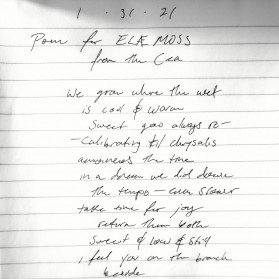 1 . 31 . 21
Poem for ELÆ MOSS
from the Cea
We grow where the wet
is cool & warm
Sweet goo always re-
-Calibrating til chrysalis
announces the time
in a dream we did
the tempo — even slower
take time for joy
return them both
Sweet & low & still
i feel you on the branch
beside